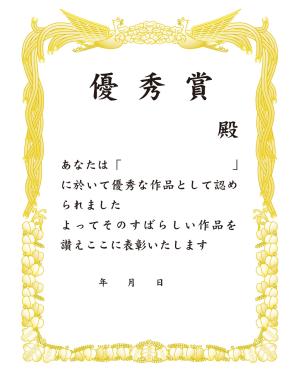 優秀賞
殿
あなたは「　　　　　　　　」
に於いて優秀な作品として認め
られました
よってそのすばらしい作品を
讃えここに表彰いたします
年　月　日